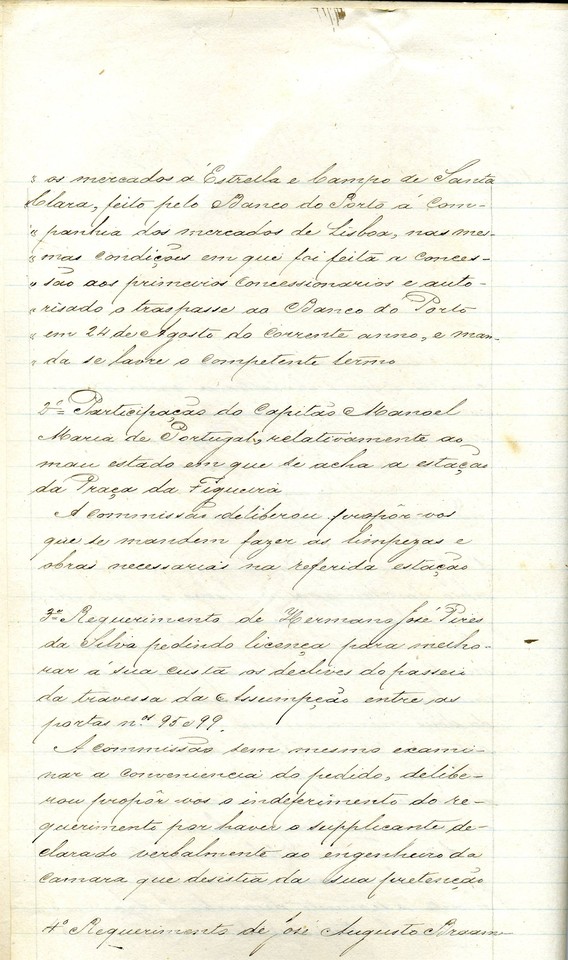 " os mercados á Estrella e Campo de Santa
Clara, feito pelo Banco do Porto á Com-
" panhia dos mercados de Lisboa, nas mes-
" mas condições em que foi feita a conces-
" são aos primeiros concessionarios e auto-
" risado o traspasse ao Banco do Porto
" em 24 de Agosto do corrente anno, e man-
" da se lavre o competente termo
2º Participação do Capitão Manoel
Maria de Portugal, relativamente ao
mau estado em que se acha a estação
da Praça da Figueira
A Commissão deliberou propôr-vos
que se mandem fazer as limpezas e
obras necessarias na referida estação
3º Requerimento de Hermano José Pires
da Silva pedindo licença para melho-
rar á sua custa os declives do passeio
da travessa da Assumpção entre as
portas nos 95 e 99.
A Commissão sem mesmo exami-
nar a conveniencia do pedido, delibe-
rou propôr-vos o indeferimento do re-
querimento por haver o supplicante de-
clarado verbalmente ao engenheiro da
Camara que desistia da sua pretenção
4º Requerimento de José Augusto Braam-